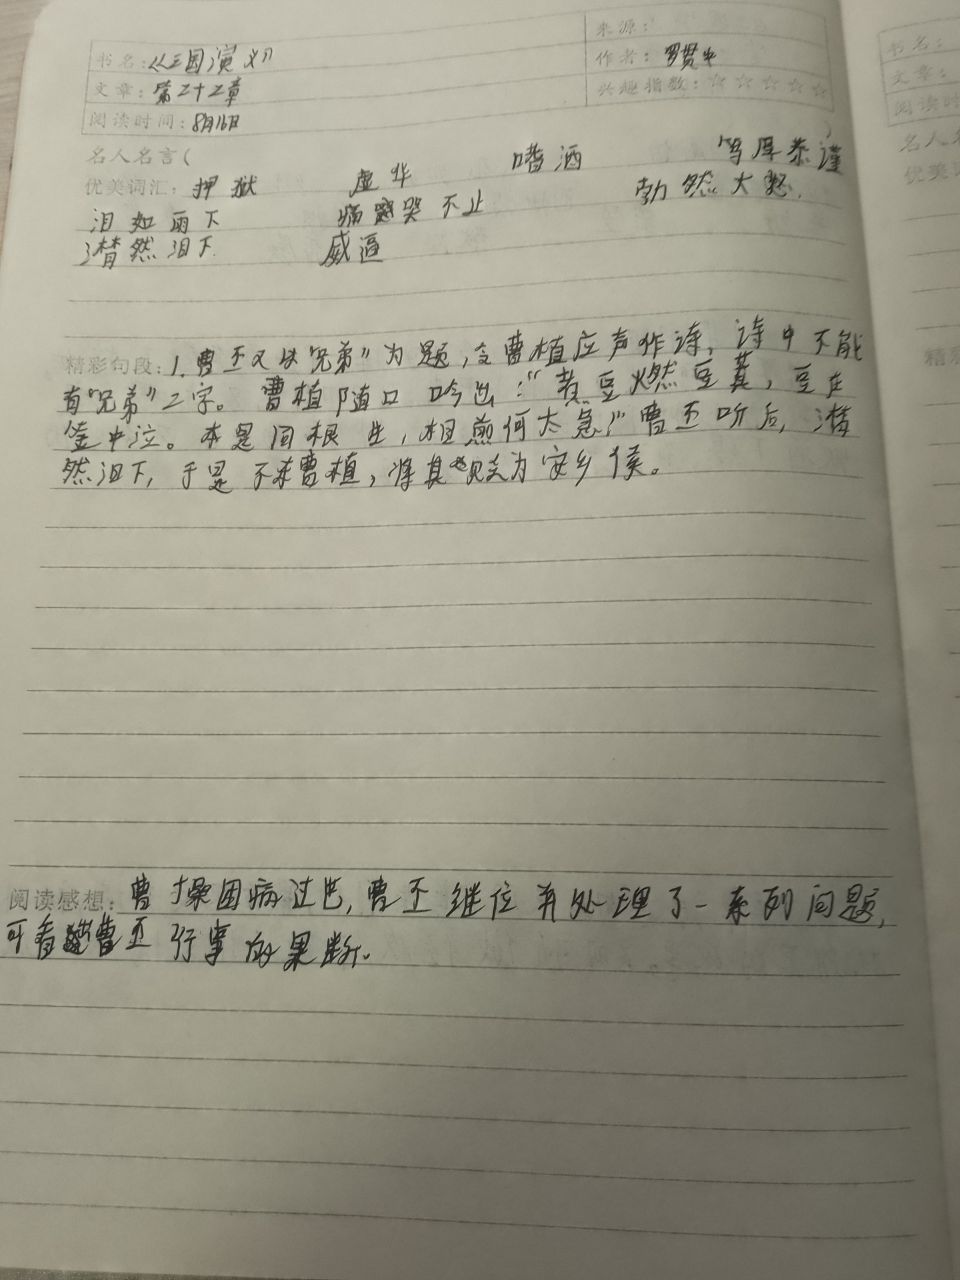 书名：《三国演义》
来源：
作者：罗贯中
文章：第二十二章
兴趣指数：☆☆☆☆☆
阅读时间：8月16日
名人名言（
优美词汇：押狱 虚华 嗜酒 笃厚恭谨
泪如雨下 痛哭不止 勃然大怒.
潸然泪下. 威逼
精彩句段：1.曹丕又以"兄弟"为题，令曹植应声作诗，诗中不能
有"兄弟"二字。曹植随口吟出："煮豆燃豆萁，豆在
釜中泣。本是同根生，相煎何太急！"曹丕听后，潸
然泪下，于是不杀曹植，将其贬为安乡侯。
阅读感想：曹操因病过世，曹丕继位并处理了一系列问题，
可看出曹丕行事的果断.
书名：
文章：
阅读时
名人名
优美词
精